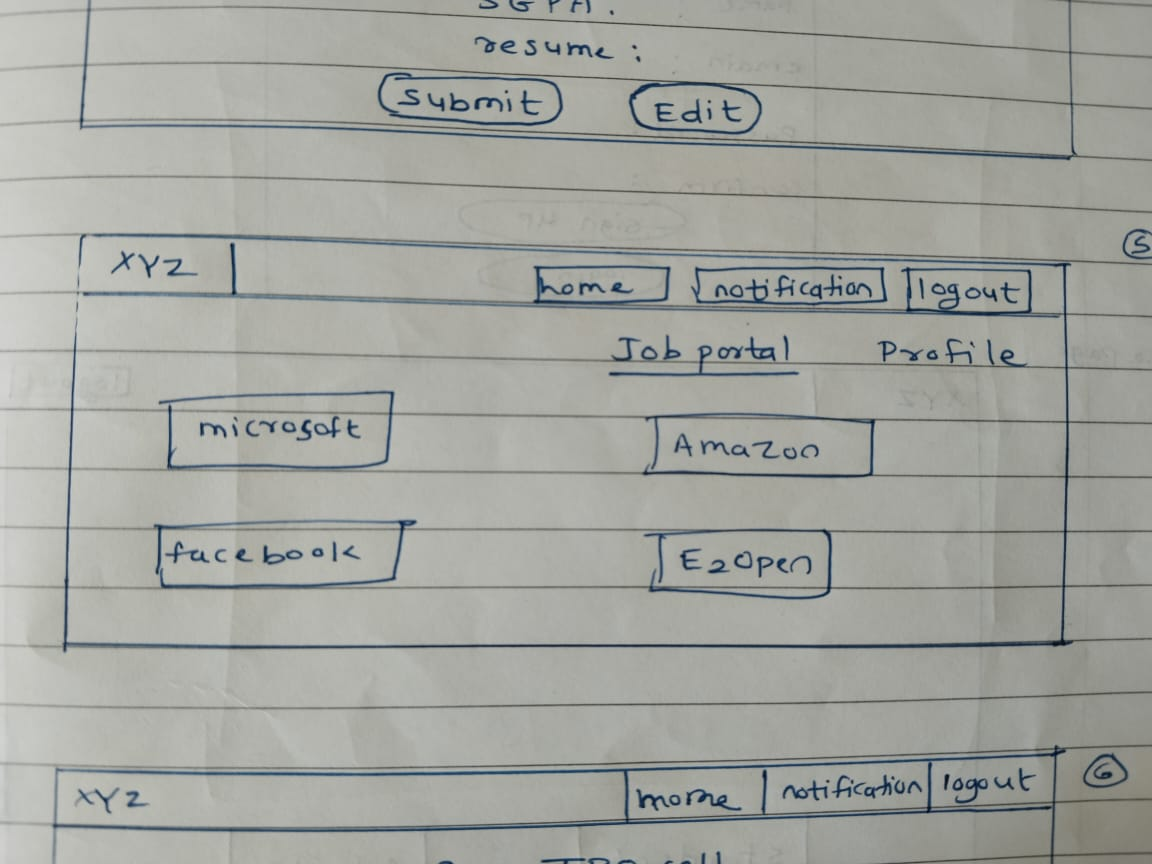 SGPA:
resume :
Submit Edit
5
XYZ home notification logout
Job portal Profile
microsoft Amazon
facebook E2open
6
XYZ home notification logout